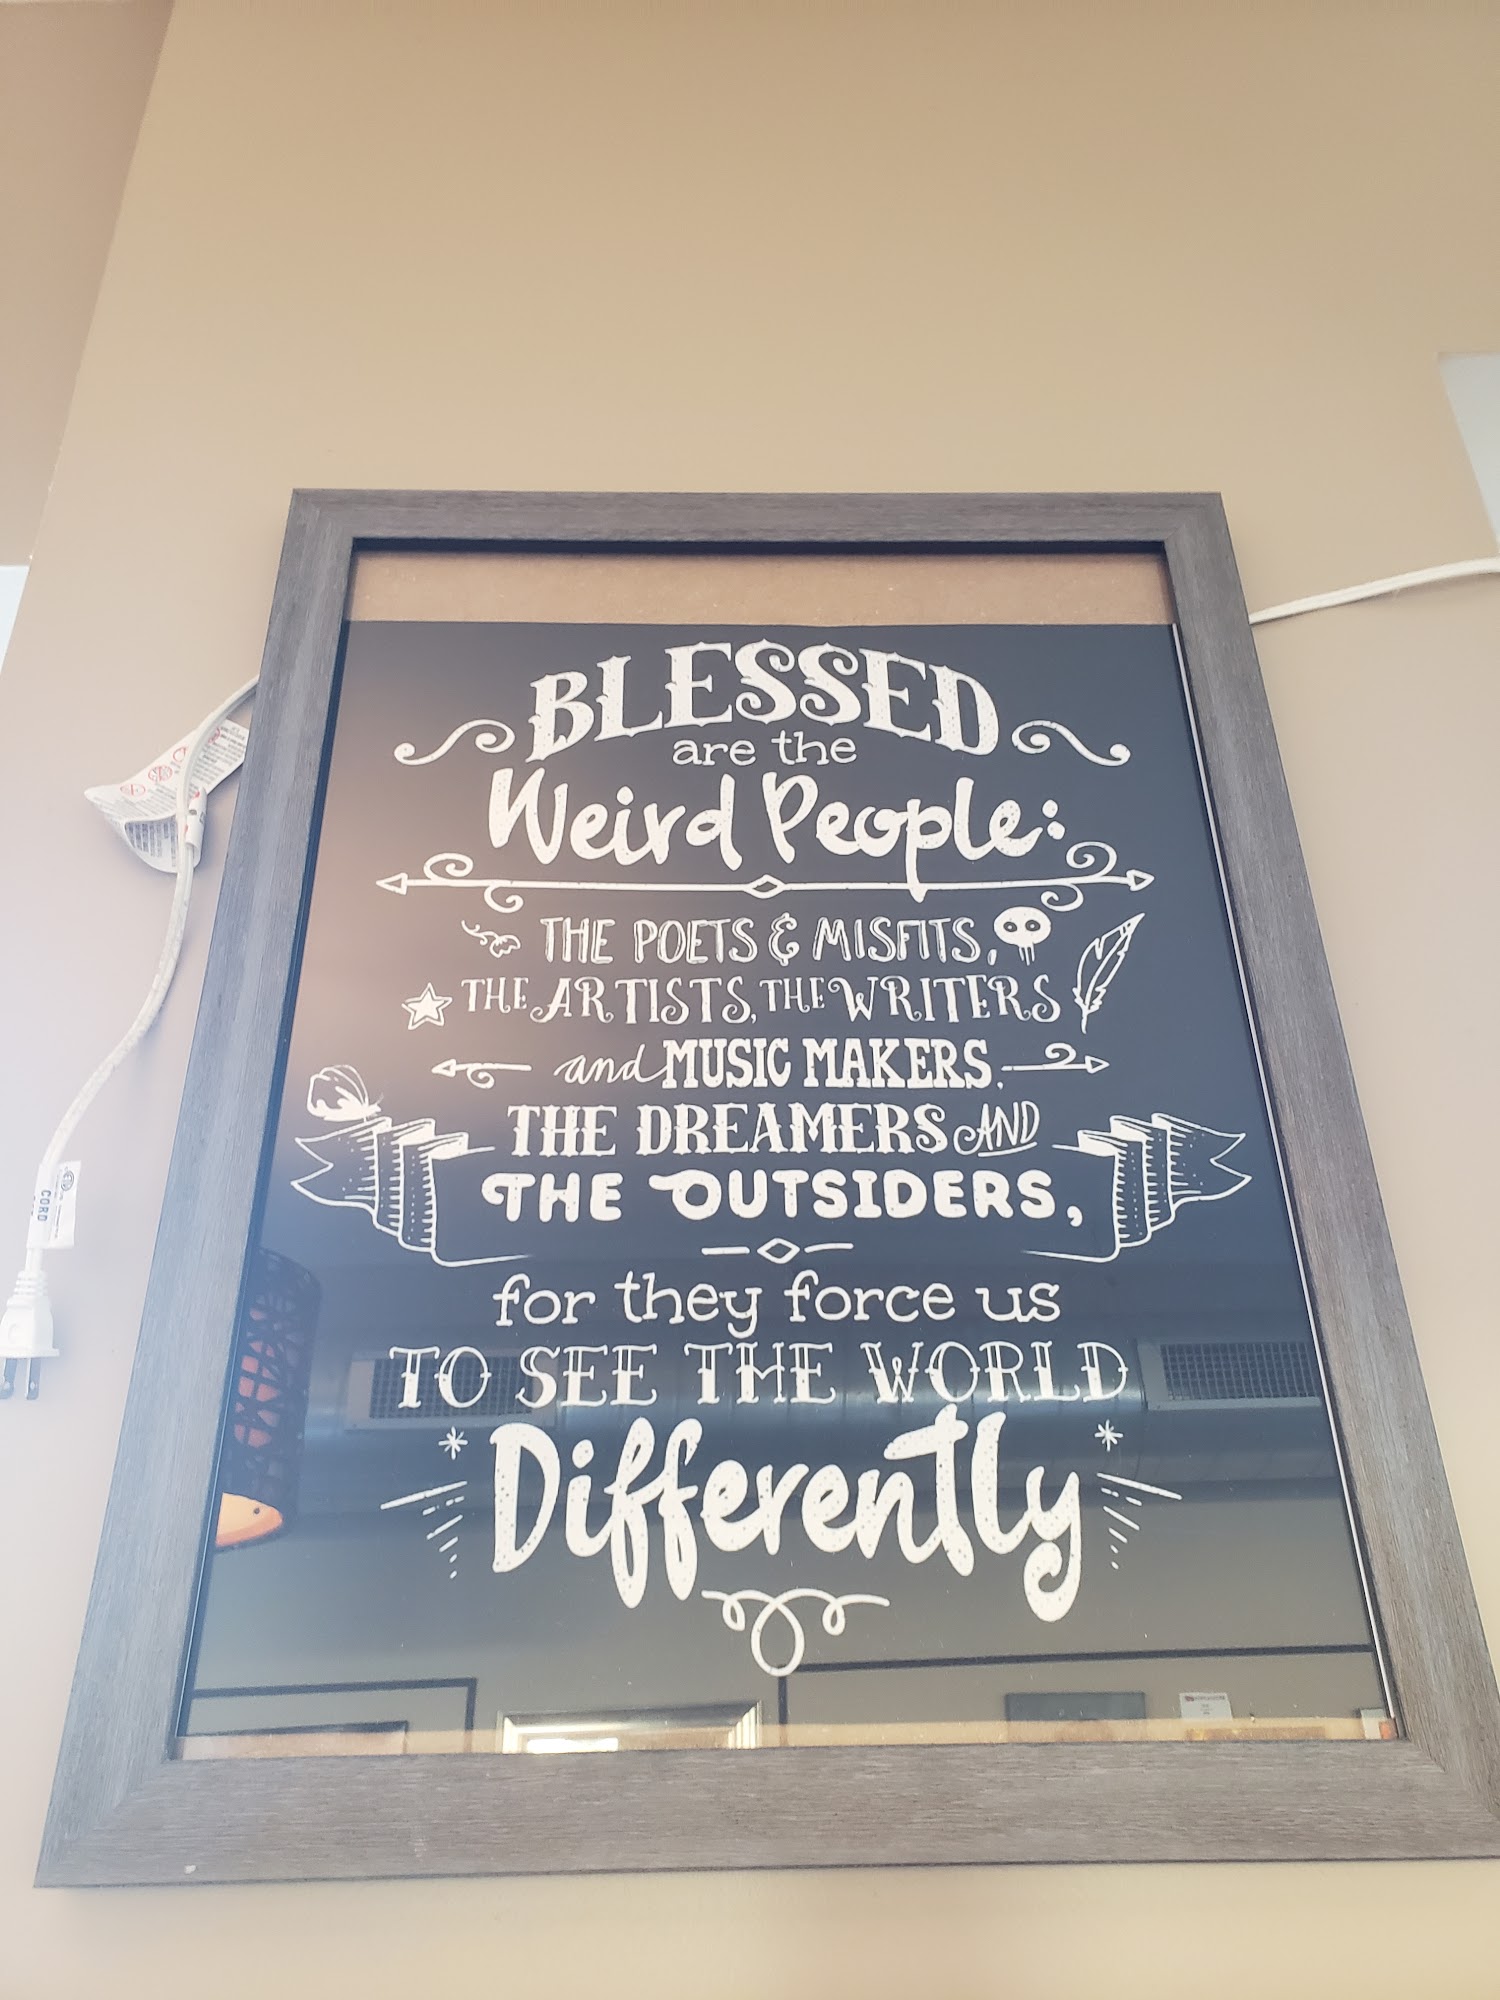 BLESSED
are the
Weird People:
THE POETS & MISFITS,
THE ARTISTS, THE WRITERS
and MUSIC MAKERS,
THE DREAMERS AND
THE OUTSIDERS,
for they force us
TO SEE THE WORLD
Differently
CORD